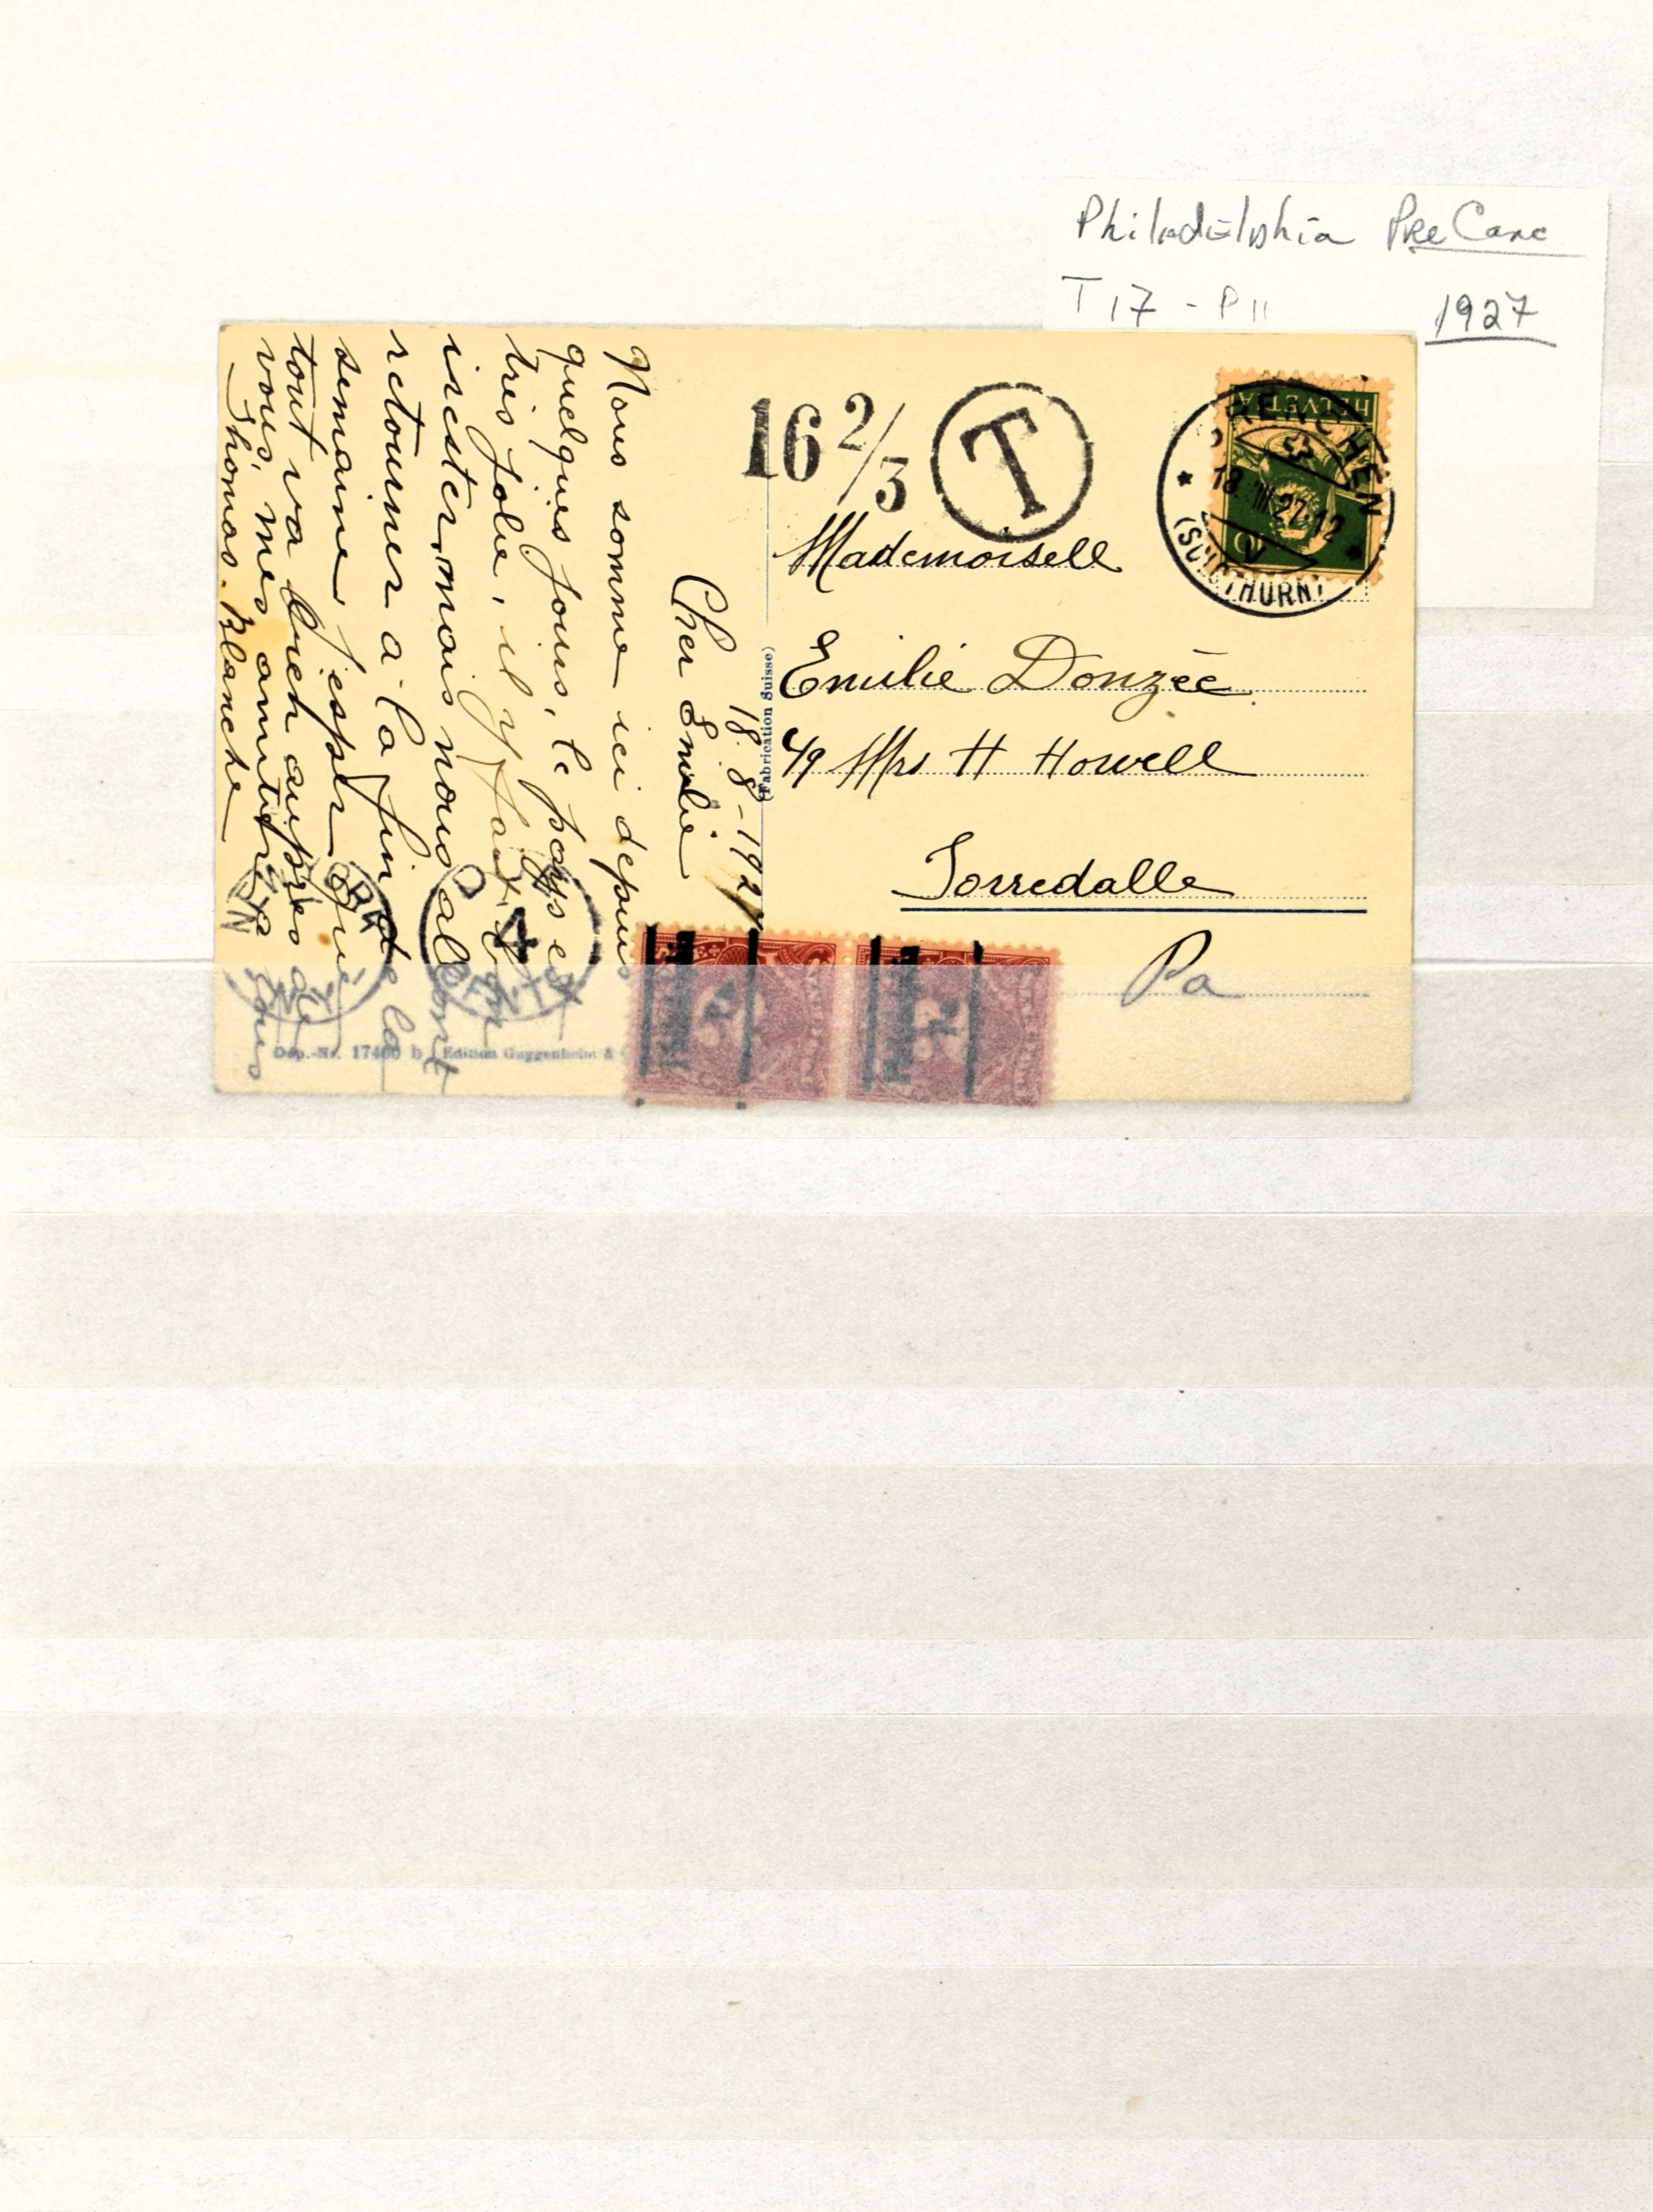 Philadelphia PreCanc
T 17 - P 11
1927
HELVETIA
18. III. 27. 12
(SOLOTHURN)
16 2/3
T
Mademoisell
Emilie Donzée
c/o Mrs H Howell
Torredalle
Pa
(Fabrication Suisse)
18. 8 - 192
Cher Emilie
Nous somme ici depuis
quelques jours, le pays est
tres jolie, il y fait bon
irester, mais nous allont
retourner a la fin de la
semaine j'esper que
tout va bien aupres de
vous, mes amities
Thomas. Blanche
Dep.-Nr. 17460 b Edition Guggenheim &